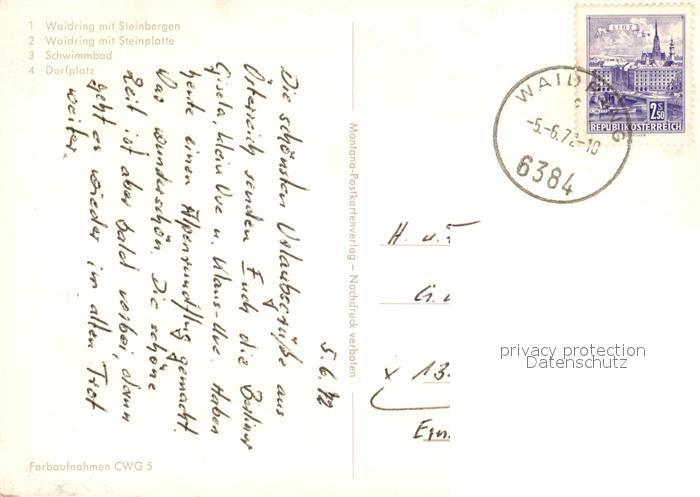 1 Waidring mit Steinbergen
2 Waidring mit Steinplatte
3 Schwimmbad
4 Dorfplatz
5.6.72
Die schönsten Urlaubsgrüße aus
Österreich senden Euch die Berliner
Gisela, klein Uve u. Klaus-Uve. Haben
heute einen Alpenrundflug gemacht.
Das wunderschön. Die schöne
Zeit ist aber bald vorbei, dann
geht es wieder im alten Trott
weiter.
Farbaufnahmen CWG 5
Montana-Postkartenverlag – Nachdruck verboten
LINZ
2S50
REPUBLIK ÖSTERREICH
WAIDRING
-5.-6.72-10
6384
H. u.
G.
x 13.
privacy protection
Datenschutz